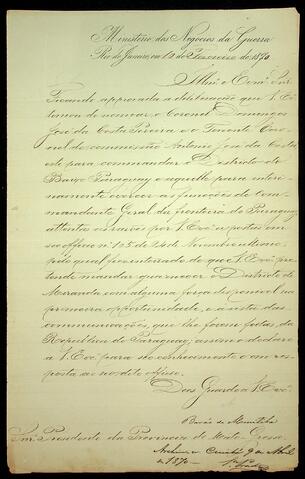 Ministerio dos Negocios da Guerra
Rio de Janeiro, em 12 de Fevereiro de 1870.
Illmo e Exmo Snr
Ficando approvada a deliberação que V. Exa
tomou de nomear o Coronel Domingos
José da Costa Pereira e o Tenente Coro-
nel de commissão Antonio José da Costa,
este para commandar o Districto do
Baixo Paraguay e aquelle para interi-
namente exercer as funcções de Com-
mandante Geral da fronteira do Paraguay,
attentas as rasões por V. Exa expostas em
seo officio nº 125 de 24 de Novembro ultimo,
pelo qual fico inteirado de que V. Exa pre-
tende mandar guarnecer o Districto de
Miranda com alguma força disponivel na
primeira opportunidade, e á vista das
communicações, que lhe forem feitas, da
Republica do Paraguay; assim o declaro
a V. Exa para seo conhecimento e em res-
posta ao sobredito officio.
Deos Guarde a V. Exa
Barão de Muritiba
Snr. Presidente da Provincia de Matto-Grosso
Archive-se. Cuiabá 9 de Abril
de 1870